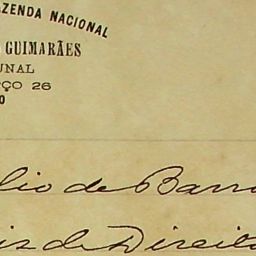 AZENDA NACIONAL
GUIMARÃES
UNAL
ÇO 26
O
lio de Barr
is de Direito